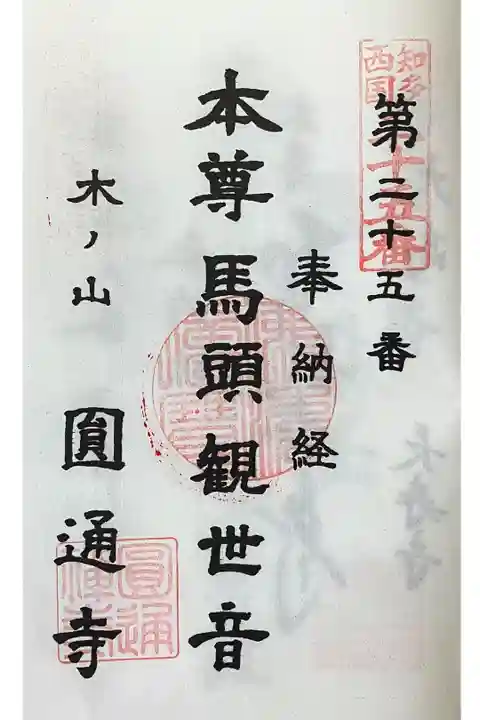 知多
西国
十五番
第二十五番
奉納経
本尊馬頭観世音
木ノ山 圓通寺
圓通
禅寺